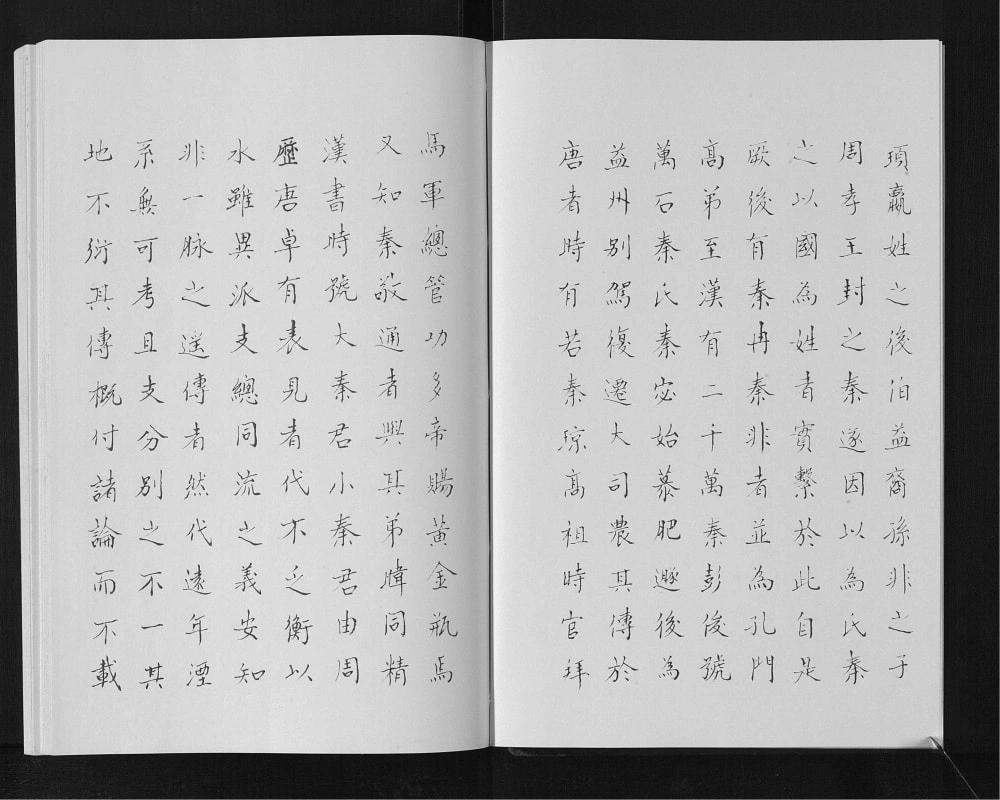 頊嬴姓之後伯益裔孫非之子
周孝王封之秦遂因以為氏秦
之以國為姓者實繫於此自是
厥後有秦冉秦非者並為孔門
高弟至漢有二千萬秦彭俊號
萬石秦氏秦宓始慕肥遯後為
益州別駕復遷大司農其傳於
唐者時有若秦瓊高祖時官拜
馬軍總管功多帝賜黃金瓶焉
又知秦敬通者與其弟暐同精
漢書時號大秦君小秦君由周
歷唐卓有表見者代不乏衡以
水雖異派支總同流之義安知
非一脉之遥傳者然代遠年湮
系無可考且支分別之不一其
地不衍其傳概付諸論而不載